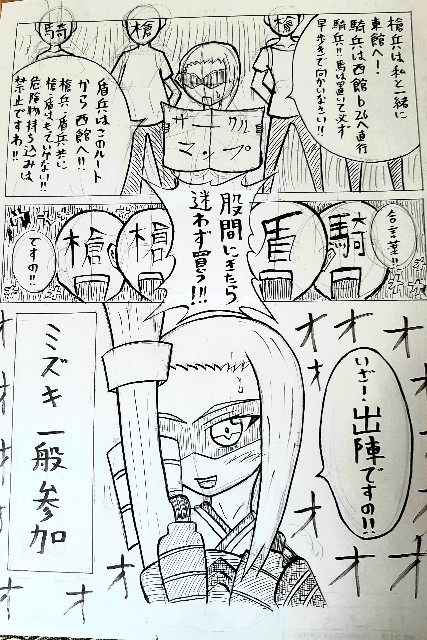 槍兵は私と一緒に
東館へ!
騎兵は西館b26へ直行
騎兵!!馬は置いて又オ
早歩きで向かいなさい!!
槍
槍
騎
サークル
マップ
盾兵はこのルート
から西館へ!!
槍兵、盾兵共に
槍、盾はもていかない!!
危険物持ち込みは
禁止ですわ!!
合言葉!!
騎
盾
股間にきたら
迷わず買う!!
槍
槍
ですの!!
いざ!出陣ですの!!
オオオ
オ
オ
オオ
オ
オ
オ
オ
ミズキ一般参加